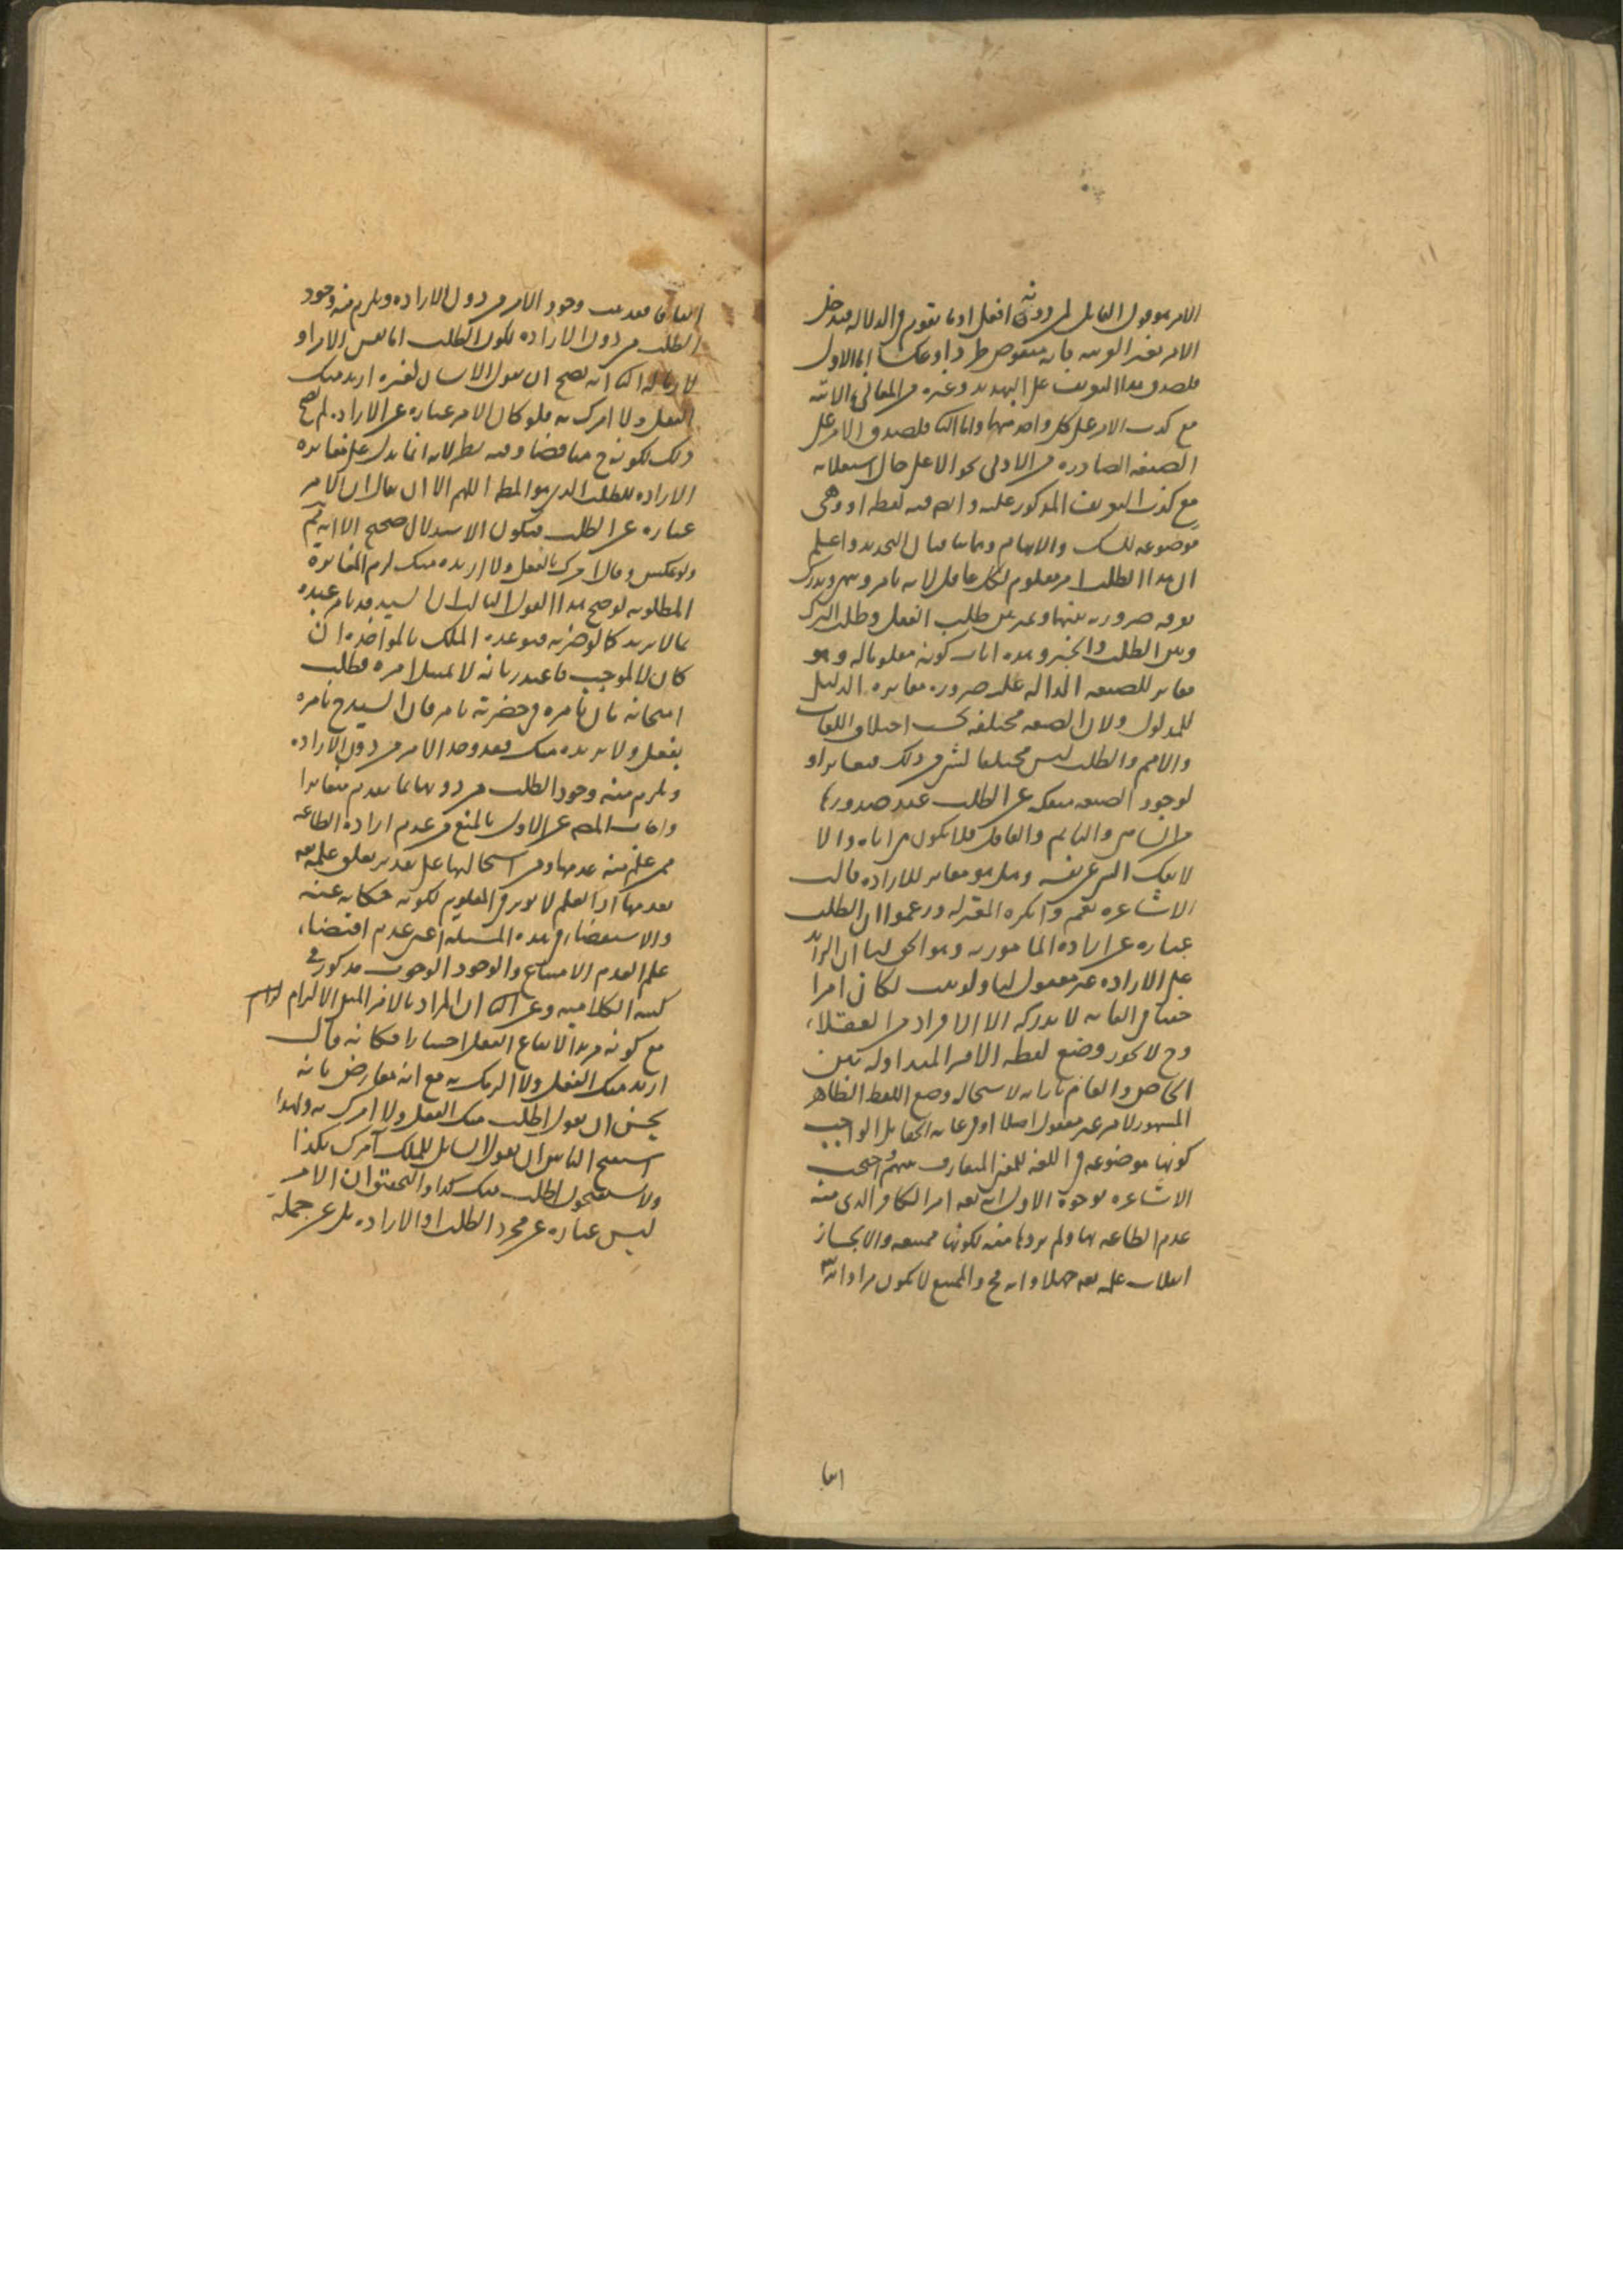 الامر هو قول القايل لمن دونه افعل او ما يقوم في الدلالة فيدخل
الامر بغير العربية بانه منقوض طردا وعكسا اما الاول
فلصدق هذا التعريف على التهديد وغيره من المعاني الاتية
مع كذب الامر على كل واحد منها واما الثاني فلصدق الامر على
الصيغة الصادرة من الادنى نحو الاعلى حال استعلائه
مع كذب التعريف المذكور عليه وايضا فيه لفظة او وهي
موضوعة للشك والابهام وهما ينافيان التحديد واعلم
ان هذا الطلب امر معلوم لكل عاقل لانه يامر وينهى ويدرك
تفرقة ضرورية بينهما وبين طلب الفعل وطلب الترك
وبين الطلب والخبر وهذه اثبات كونه معلوما له وهو
مغاير للصيغة الدالة عليه ضرورة مغايرة الدليل
للمدلول ولان الصيغة مختلفة بحسب اختلاف اللغات
والامم والطلب ليس مختلفا لشيء من ذلك فتغايرا و
لوجود الصيغة منفكة عن الطلب عند صدورها
من الساهي والنايم والغافل فلا يكون هي اياه والا
لانفك الشيء عن نفسه وهل هو مغاير للارادة قالت
الاشاعرة نعم وانكره المعتزلة وزعموا ان الطلب
عبارة عن ارادة المامور به وهو الحق لنا ان الزايد
على الارادة غير معقول لنا ولو ثبت لكان امرا
خفيا في الغاية لا يدركه الا الافراد من العقلاء
وح لا يجوز وضع لفظة الامر المتداولة بين
الخاص والعام بازائه لاستحالة وضع اللفظ الظاهر
المشهور لامر غير معقول اصلا او في غاية الخفاء بل الواجب
كونها موضوعة في اللغة للمعنى المتعارف منهم احتجت
الاشاعرة بوجوه الاول انه تعه امر الكافر الذي منه
عدم الطاعة بها ولم يردها منه لكونها ممتنعة والا لجاز
انقلاب علمه تعه جهلا وانه مح والممتنع لا يكون مرادا لله
اتفا
اتفاقا فقد ثبت وجود الامر من دون الارادة ويلزم منه وجود
الطلب من دون الارادة لكون الطلب اما نفس الامر او
لازما له الثاني انه يصح ان يقول الانسان لغيره اريد منك
الفعل ولا امرك به فلو كان الامر عبارة عن الارادة لم يصح
ذلك لكونه ح مناقضا وفيه نظر لانه انما يدل على مغايرة
الارادة للطلب الذي هو المط اللهم الا ان يقال ان الامر
عبارة عن الطلب فيكون الاستدلال صحيح الا انه يتم
ولو عكس وقال امرك بالفعل ولا اريده منك لزم المغايرة
المطلوبة لو صح هذا القول الثالث ان السيد قد يامر عبده
بما لا يريد كما لو ضربه فتوعده الملك بالمواخذة ان
كان لا لموجب فاعتذر بانه لا يمتثل امره فطلب
امتحانه بان يامره في حضرته بامر فان السيد ح يامره
بفعل ولا يريده منك فقد وجد الامر من دون الارادة
ويلزم منه وجود الطلب من دونها لما تقدم فتغايرا
واجاب المص عن الاول بالمنع من عدم ارادة الطاعة
ممن علم منه عدمها ومن استحالتها على تقدير تعلق علمه تعه
بعدمها اذ العلم لا يوثر في المعلوم لكونه حكاية عنه
والاستقصاء في هذه المسئلة اعني عدم اقتضاء
علم العدم الامتناع والوجود الوجوب مذكور في
كتبه الكلامية وعن الثاني ان المراد بالامر المنفي الالزام
مع كونه مريدا لايقاع الفعل اختيارا فكانه قال
اريد منك الفعل ولا الزمك به مع انه معارض بانه
يحسن ان يقول اطلب منك الفعل ولا امرك به ولهذا
استقبح الناس ان يقول السايل للملك آمرك بكذا
ولا يستقبحون اطلب منك كذا والتحقيق ان الامر
ليس عبارة عن مجرد الطلب او الارادة بل عن جملة